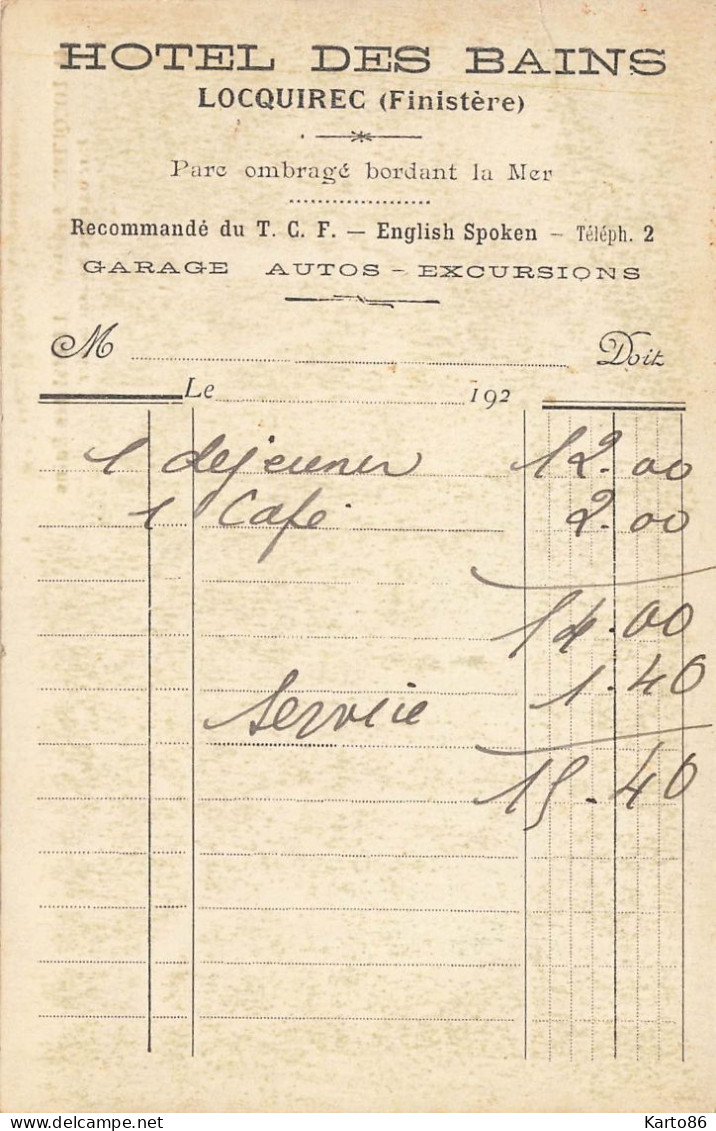 HOTEL DES BAINS
LOCQUIREC (Finistère)
Parc ombragé bordant la Mer
Recommandé du T. C. F. — English Spoken — Téléph. 2
GARAGE AUTOS - EXCURSIONS
M Doit
Le 192
1 dejeuner 12.00
1 Café 2.00
14.00
Service 1.40
15.40
Karto86